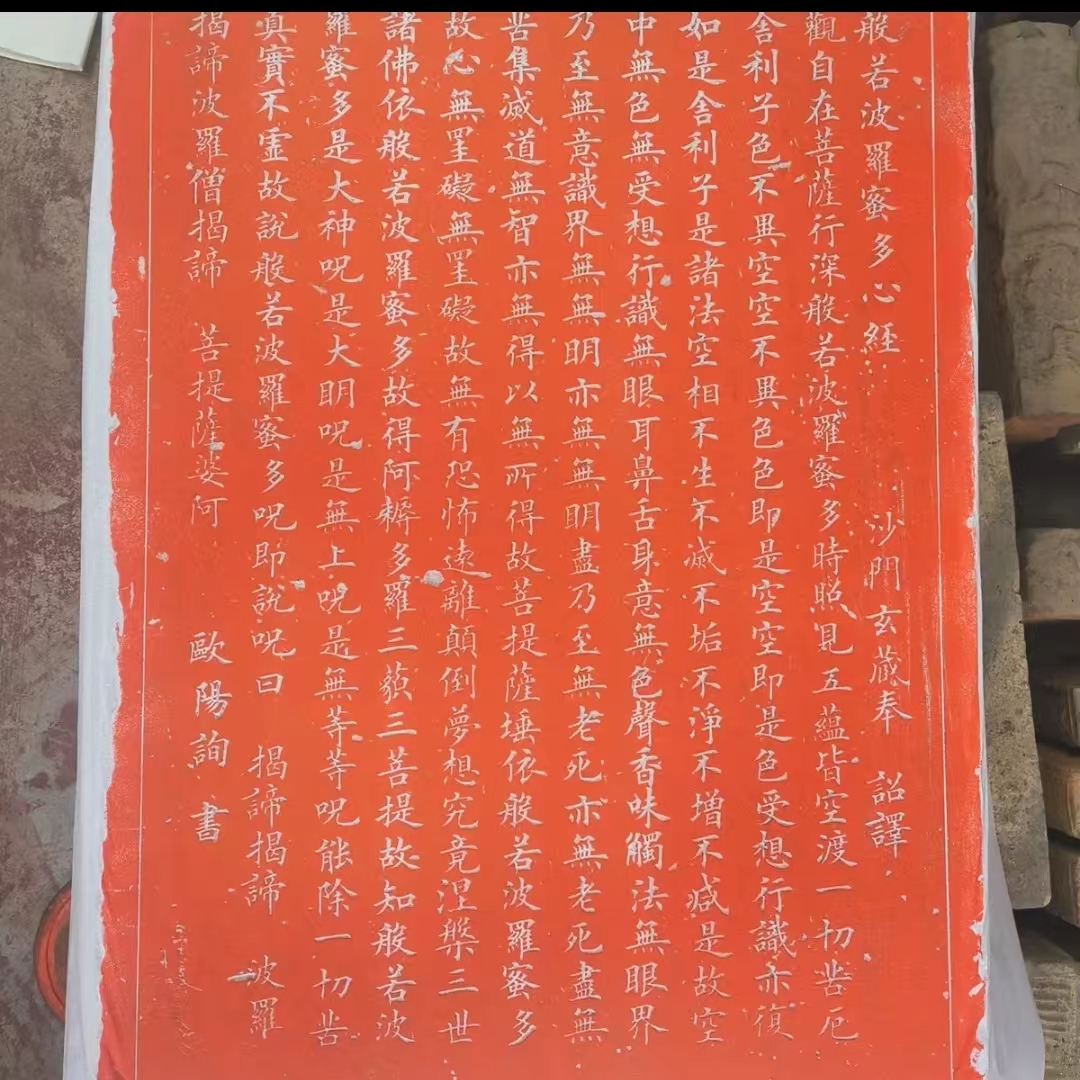 般若波羅蜜多心經 沙門玄蔵奉 詔譯
觀自在菩薩行深般若波羅蜜多時照見五蘊皆空渡一切苦厄
舍利子色不異空空不異色色即是空空即是色受想行識亦復
如是舍利子是諸法空相不生不滅不垢不淨不增不減是故空
中無色無受想行識無眼耳鼻舌身意無色聲香味觸法無眼界
乃至無意識界無無明亦無無明盡乃至無老死亦無老死盡無
苦集滅道無智亦無得以無所得故菩提薩埵依般若波羅蜜多
故心無罣礙無罣礙故無有恐怖遠離顛倒夢想究竟涅槃三世
諸佛依般若波羅蜜多故得阿耨多羅三藐三菩提故知般若波
羅蜜多是大神呪是大明呪是無上呪是無等等呪能除一切苦
真實不虛故說般若波羅蜜多呪即說呪曰 揭諦揭諦 波羅
揭諦波羅僧揭諦 菩提薩婆阿 歐陽詢 書